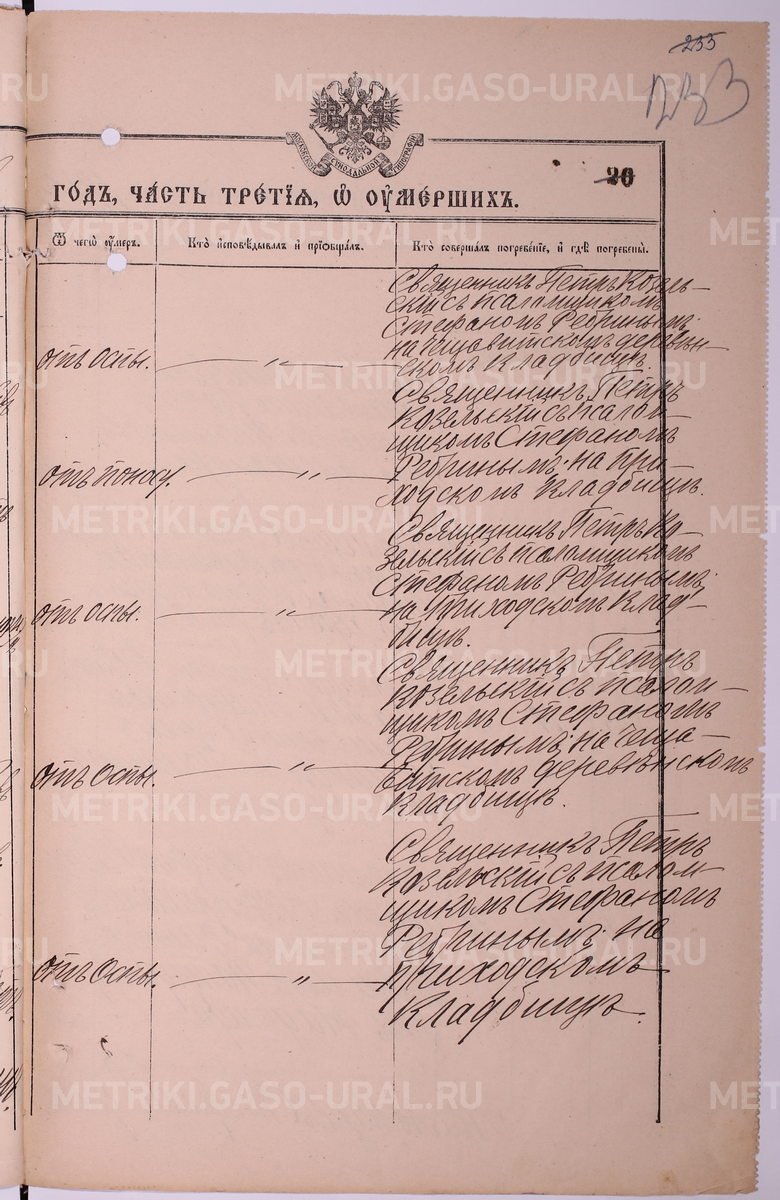 235
233
МОСКОВСКОЙ СѴНОДАЛЬНОЙ ТИПОГРАФІИ
20
ГОДЪ, ЧАСТЬ ТРЕТІЯ, Ѡ ОУМЕРШИХЪ.
Ѿ чегѡ оумеръ.
Кто исповѣдывалъ и пріобщалъ.
Кто совершалъ погребеніе, и гдѣ погребены.
отъ оспы.
— „ —
Священникъ Петръ Козель-
скій съ псаломщикомъ
Стефаномъ Ребринымъ.
на деревен-
скомъ кладбищѣ.
отъ поносу.
— „ —
Священникъ Петръ
Козельскій съ псалом-
щикомъ Стефаномъ
Ребринымъ. на при-
ходскомъ кладбищѣ.
отъ оспы.
— „ —
Священникъ Петръ Ко-
зельскій съ псаломщикомъ
Стефаномъ Ребринымъ.
на приходскомъ клад-
бищѣ.
отъ оспы.
— „ —
Священникъ Петръ
Козельскій съ псалом-
щикомъ Стефаномъ
Ребринымъ. на
деревенскомъ
кладбищѣ.
отъ оспы.
— „ —
Священникъ Петръ
Козельскій съ псалом-
щикомъ Стефаномъ
Ребринымъ. на
приходскомъ
кладбищѣ.
METRIKI.GASO-URAL.RU